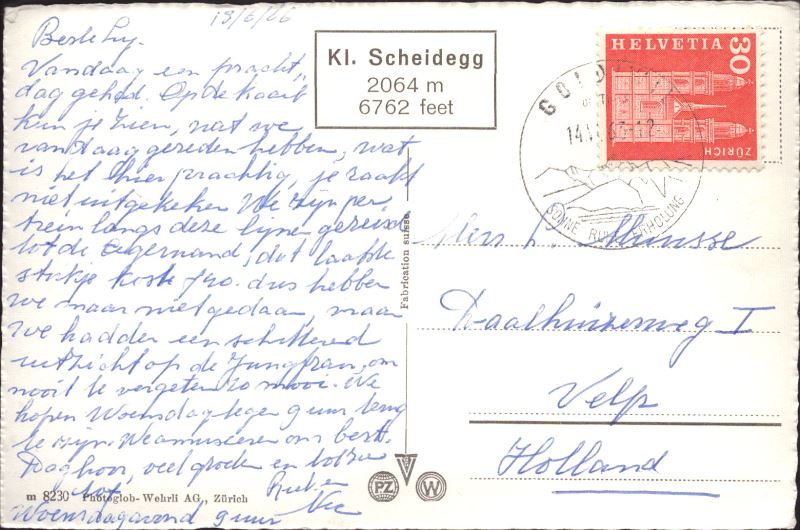 18/6/26
Beste Ly.
Vandaag een pracht
dag gehad. Op de kaart
kun je zien, wat we
vandaag gereden hebben, wat
is het hier prachtig, je raakt
niet uitgekeken. We zijn per
trein langs deze lijn gereisd
tot de Eigerwand, dat laatste
stukje koste f 40. dus hebben
we maar niet gedaan, maar
we hadden een schitterend
uitzicht op de Jungfrau, om
nooit te vergeten zo mooi. We
hopen Woensdag tegen 9 uur terug
te zijn. We amuseren ons best.
Dag hoor, veel groeten en tot
tot
Woensdagavond 9 uur
Kl. Scheidegg
2064 m
6762 feet
HELVETIA 30
ZÜRICH
SONNE RUHE ERHOLUNG
Daalhuizerweg I
Velp
Holland
Fabrication suisse
m 8230 Photoglob-Wehrli AG., Zürich
PZ W